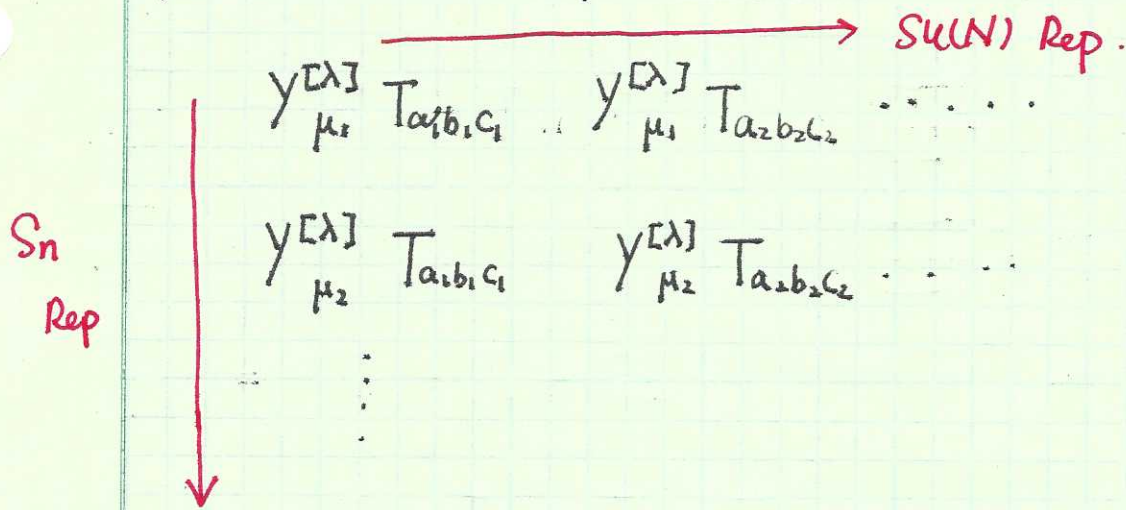 SU(N) Rep.
y^{[λ]}_{μ_1} T_{a_1b_1c_1} .. y^{[λ]}_{μ_1} T_{a_2b_2c_2} .....
Sn
Rep
y^{[λ]}_{μ_2} T_{a_1b_1c_1} y^{[λ]}_{μ_2} T_{a_2b_2c_2} ....
⋮